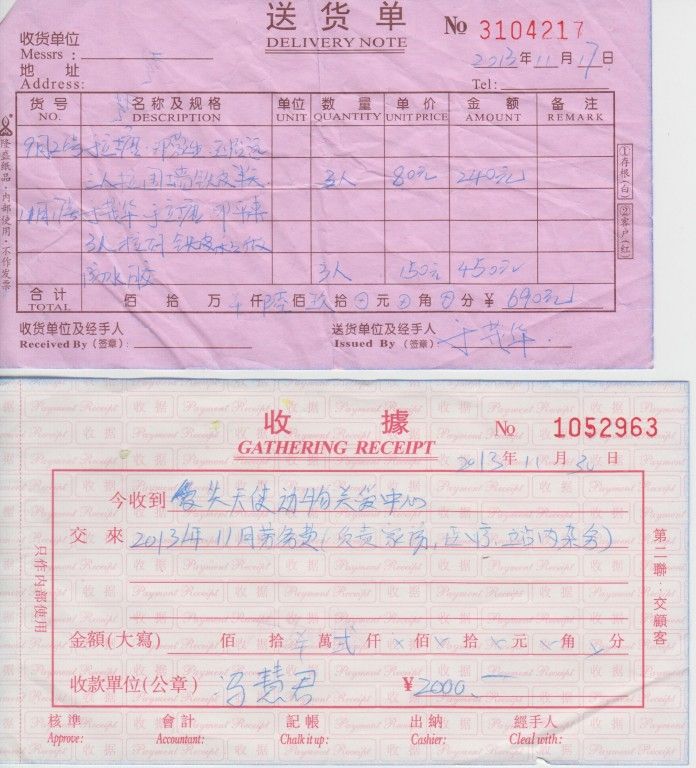 送货单
DELIVERY NOTE
No 3104217
收货单位
Messrs :
2013年11月17日
地 址
Address:
Tel:
货 号 名称及规格 单位 数 量 单 价 金 额 备 注
NO. DESCRIPTION UNIT QUANTITY UNIT PRICE AMOUNT REMARK
三人 3人 80元 240元
于茂华
3人
防水胶 3人 150元 450元
合计 佰 拾 万 仟 陆佰 玖拾 元 角 分 ¥ 690元
TOTAL
收货单位及经手人 送货单位及经手人
Received By (签章): Issued By (签章): 于茂华
隆盛纸品·内部使用·不作发票
①存根(白)
②客户(红)
收 據
GATHERING RECEIPT
No 1052963
2013年11月30日
今收到 天使动物关爱中心
交 來 2013年11月劳务费(负责家访,医疗,站内杂务)
金額(大寫) 佰 拾 萬 贰仟 佰 拾 元 角 分
收款單位(公章) 冯慧君 ¥2000.—
核準 會計 記帳 出納 經手人
Approve: Accountant: Chalk it up: Cashier: Cleal with:
只作内部使用
第二聯:交顧客